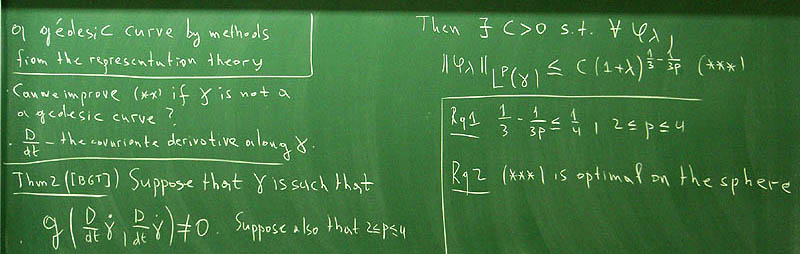 a géodesic curve by methods
from the representation theory
. Can we improve (**) if γ is not a
a geodesic curve ?
. D/dt - the covariante derivative along γ.
Thm 2 ([BGT]) Suppose that γ is such that
g(D/dt γ̇, D/dt γ̇) ≠ 0. Suppose also that 2≤p≤4
Then ∃ C>0 s.t. ∀ φ_λ,
||φ_λ||_{L^p(γ)} ≤ C(1+λ)^{1/3 - 1/3p} (***)
Rq1 1/3 - 1/3p ≤ 1/4, 2≤p≤4
Rq2 (***) is optimal on the sphere